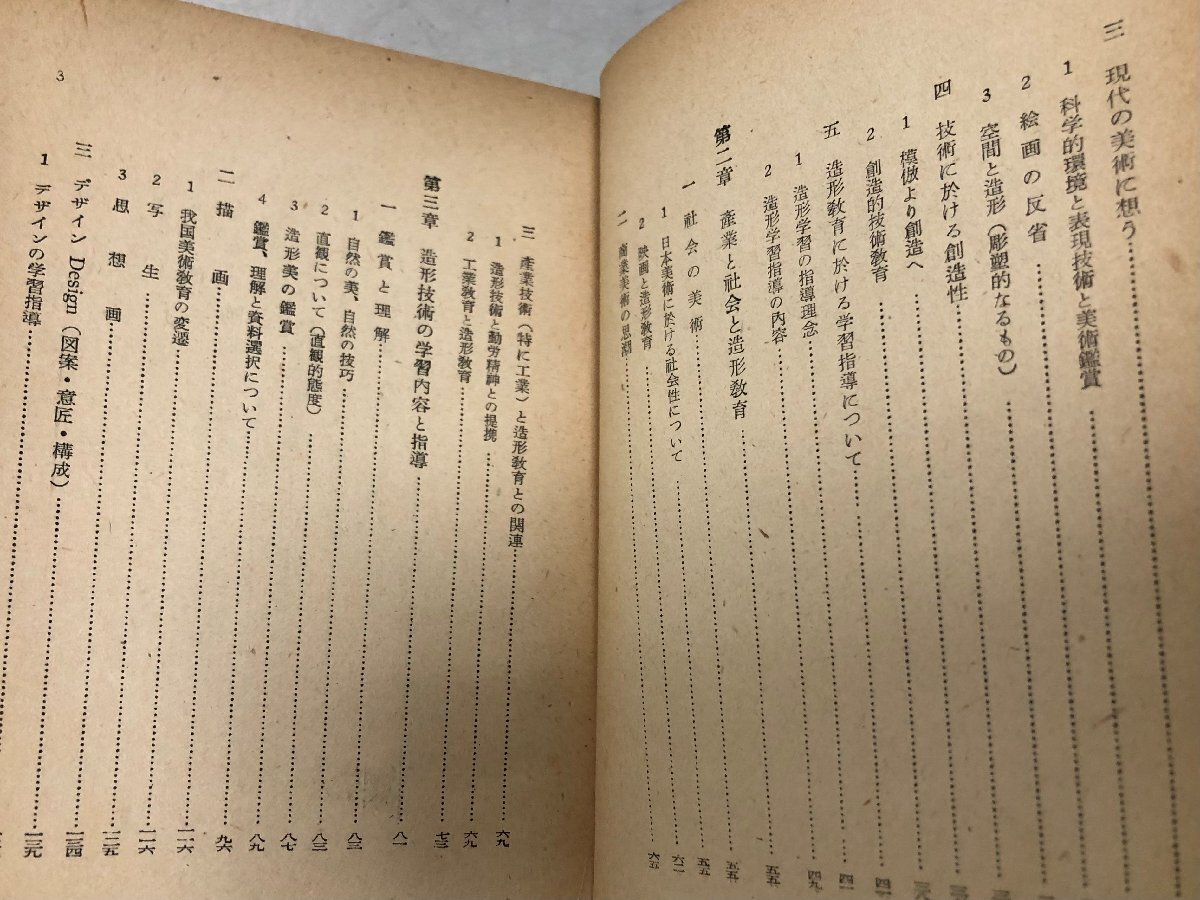 三 現代の美術に想う
1 科学的環境と表現技術と美術鑑賞
2 絵画の反省
3 空間と造形(彫塑的なるもの)
四 技術に於ける創造性
1 模倣より創造へ
2 創造的技術教育
五 造形教育に於ける学習指導について
1 造形学習の指導理念 四九
2 造形学習指導の内容
第二章 産業と社会と造形教育
一 社会の美術 五五
1 日本美術に於ける社会性について 六二
2 映画と造形教育 六五
二 商業美術の思潮
三 産業技術(特に工業)と造形教育との関連 六九
1 造形技術と勤労精神との提携 六九
2 工業教育と造形教育 七三
第三章 造形技術の学習内容と指導
一 鑑賞と理解 八一
1 自然の美、自然の技巧
2 直観について(直観的態度)
3 造形美の鑑賞 八七
4 鑑賞、理解と資料選択について 八九
二 描画 九六
1 我国美術教育の変遷
2 写生 一一六
3 思想画 一二五
三 デザイン Design(図案・意匠・構成) 一三四
1 デザインの学習指導 一三九
3